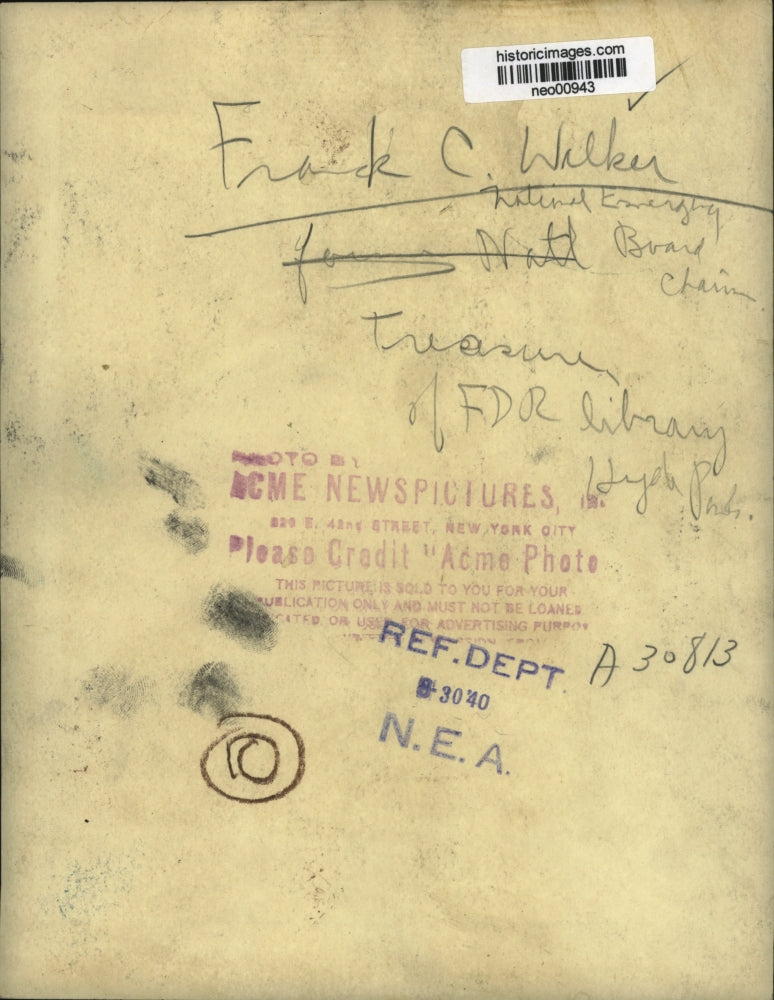 historicimages.com
neo00943
Frank C. Walker
National Emergency
Natl Board
Chairm
Treasurer
of FDR library
Hyde Park.
PHOTO BY
ACME NEWSPICTURES, INC.
220 E. 42nd STREET, NEW YORK CITY
Please Credit "Acme Photo
THIS PICTURE IS SOLD TO YOU FOR YOUR
PUBLICATION ONLY AND MUST NOT BE LOANED
OR USED FOR ADVERTISING PURPOS
REF. DEPT
A 30813
30 40
N.E.A.
10